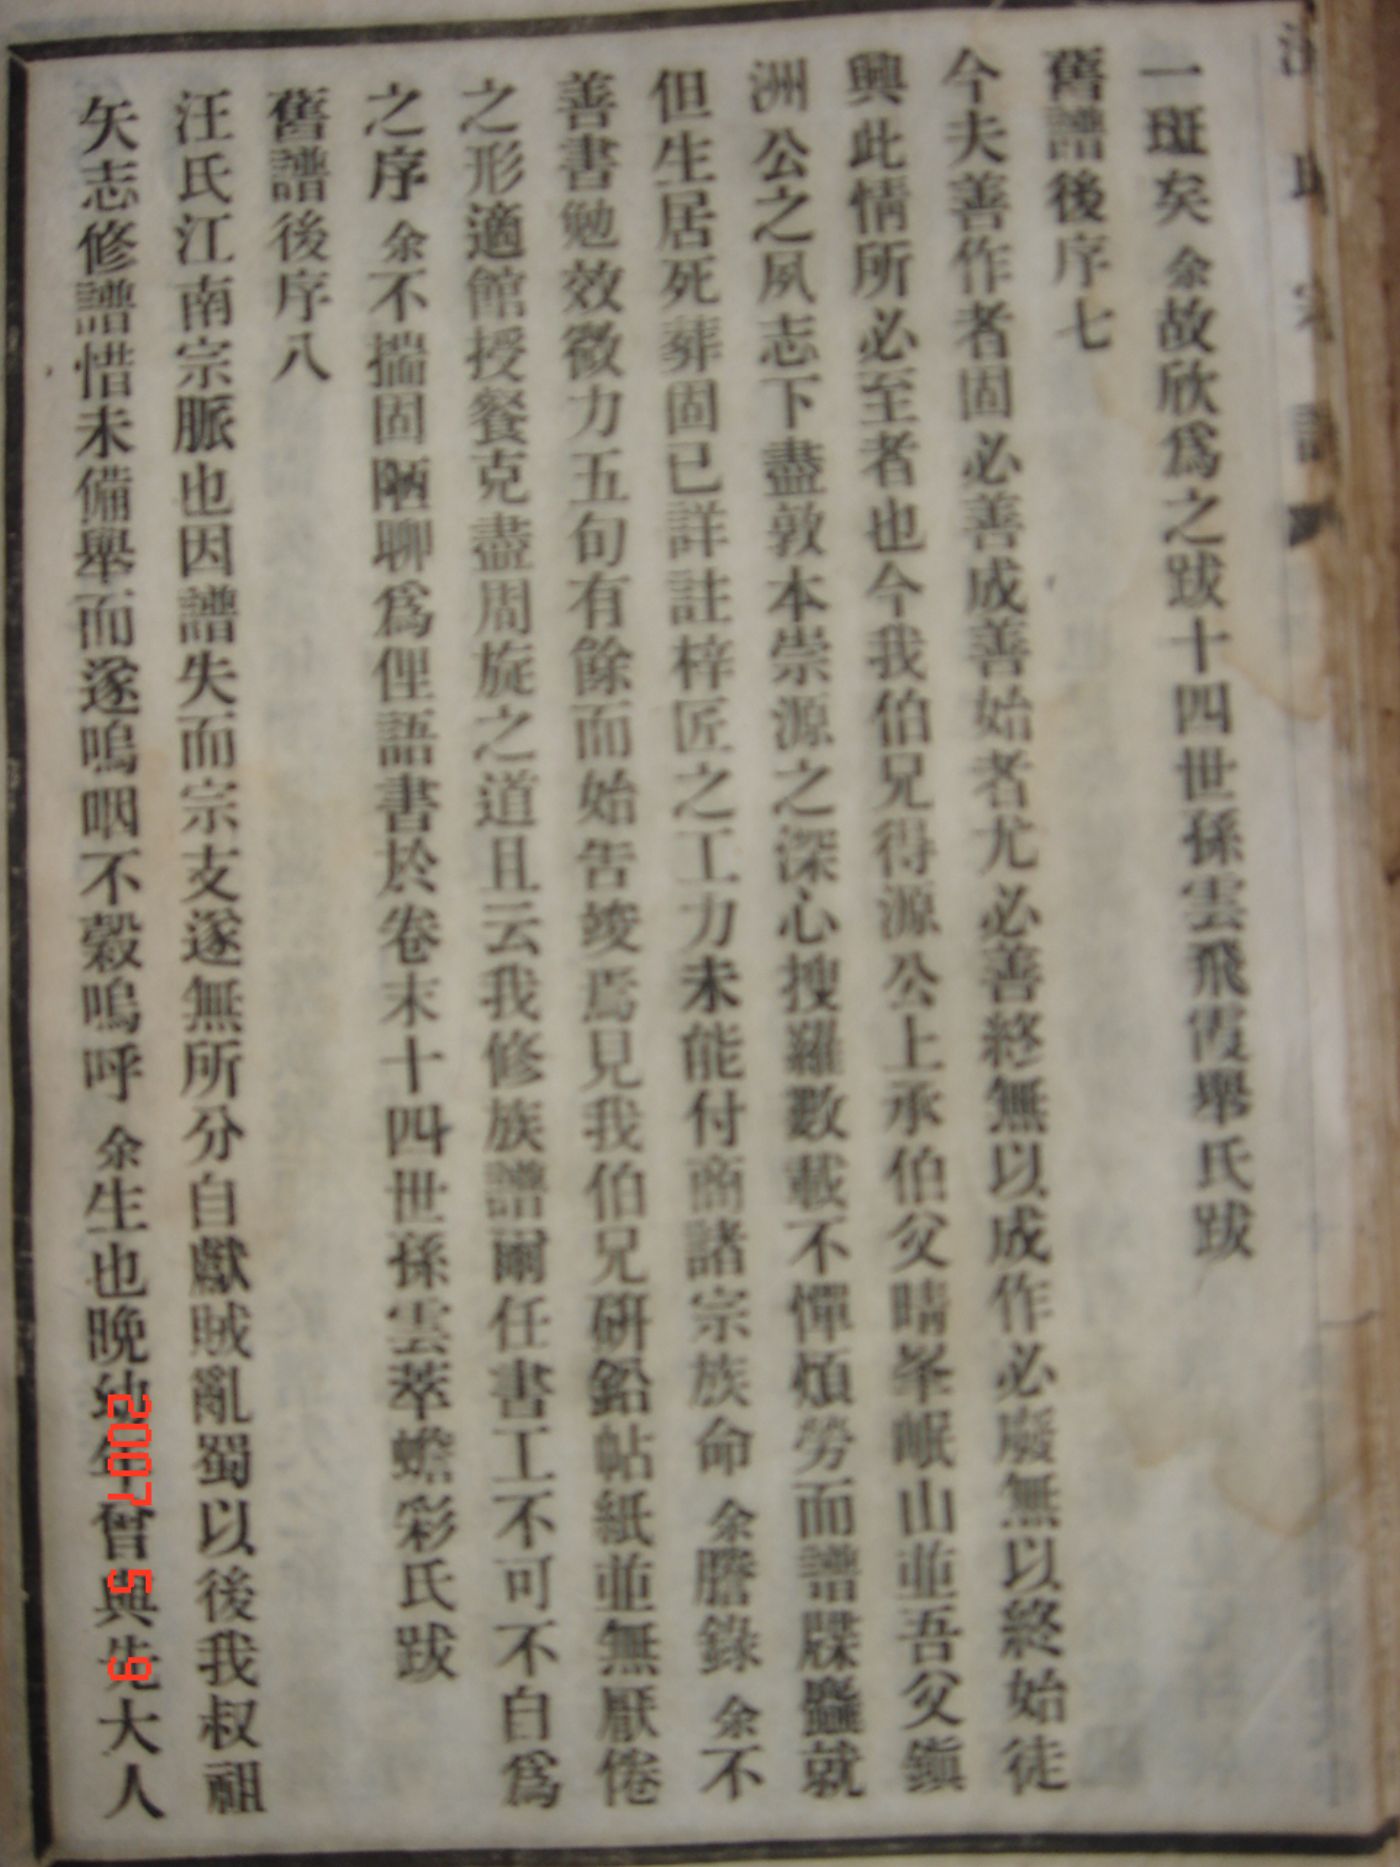 一斑矣余故欣爲之跋十四世孫雲飛霞舉氏跋
舊譜後序七
今夫善作者固必善成善始者尤必善終無以成作必廢無以終始徒
興此情所必至者也今我伯兄得源公上承伯父晴峯岷山並吾父鎭
洲公之夙志下盡敦本崇源之深心搜羅數載不憚煩勞而譜牒雖就
但生居死葬固已詳註梓匠之工力未能付商諸宗族命余謄錄余不
善書勉效微力五旬有餘而始告竣焉見我伯兄硏鉛帖紙並無厭倦
之形適館授餐克盡周旋之道且云我修族譜爾任書工不可不自爲
之序余不揣固陋聊爲俚語書於卷末十四世孫雲萃蟾彩氏跋
舊譜後序八
汪氏江南宗脈也因譜失而宗支遂無所分自獻賊亂蜀以後我叔祖
矢志修譜惜未備舉而遂嗚咽不穀嗚呼余生也晚幼年曾與先大人
2007 5 9